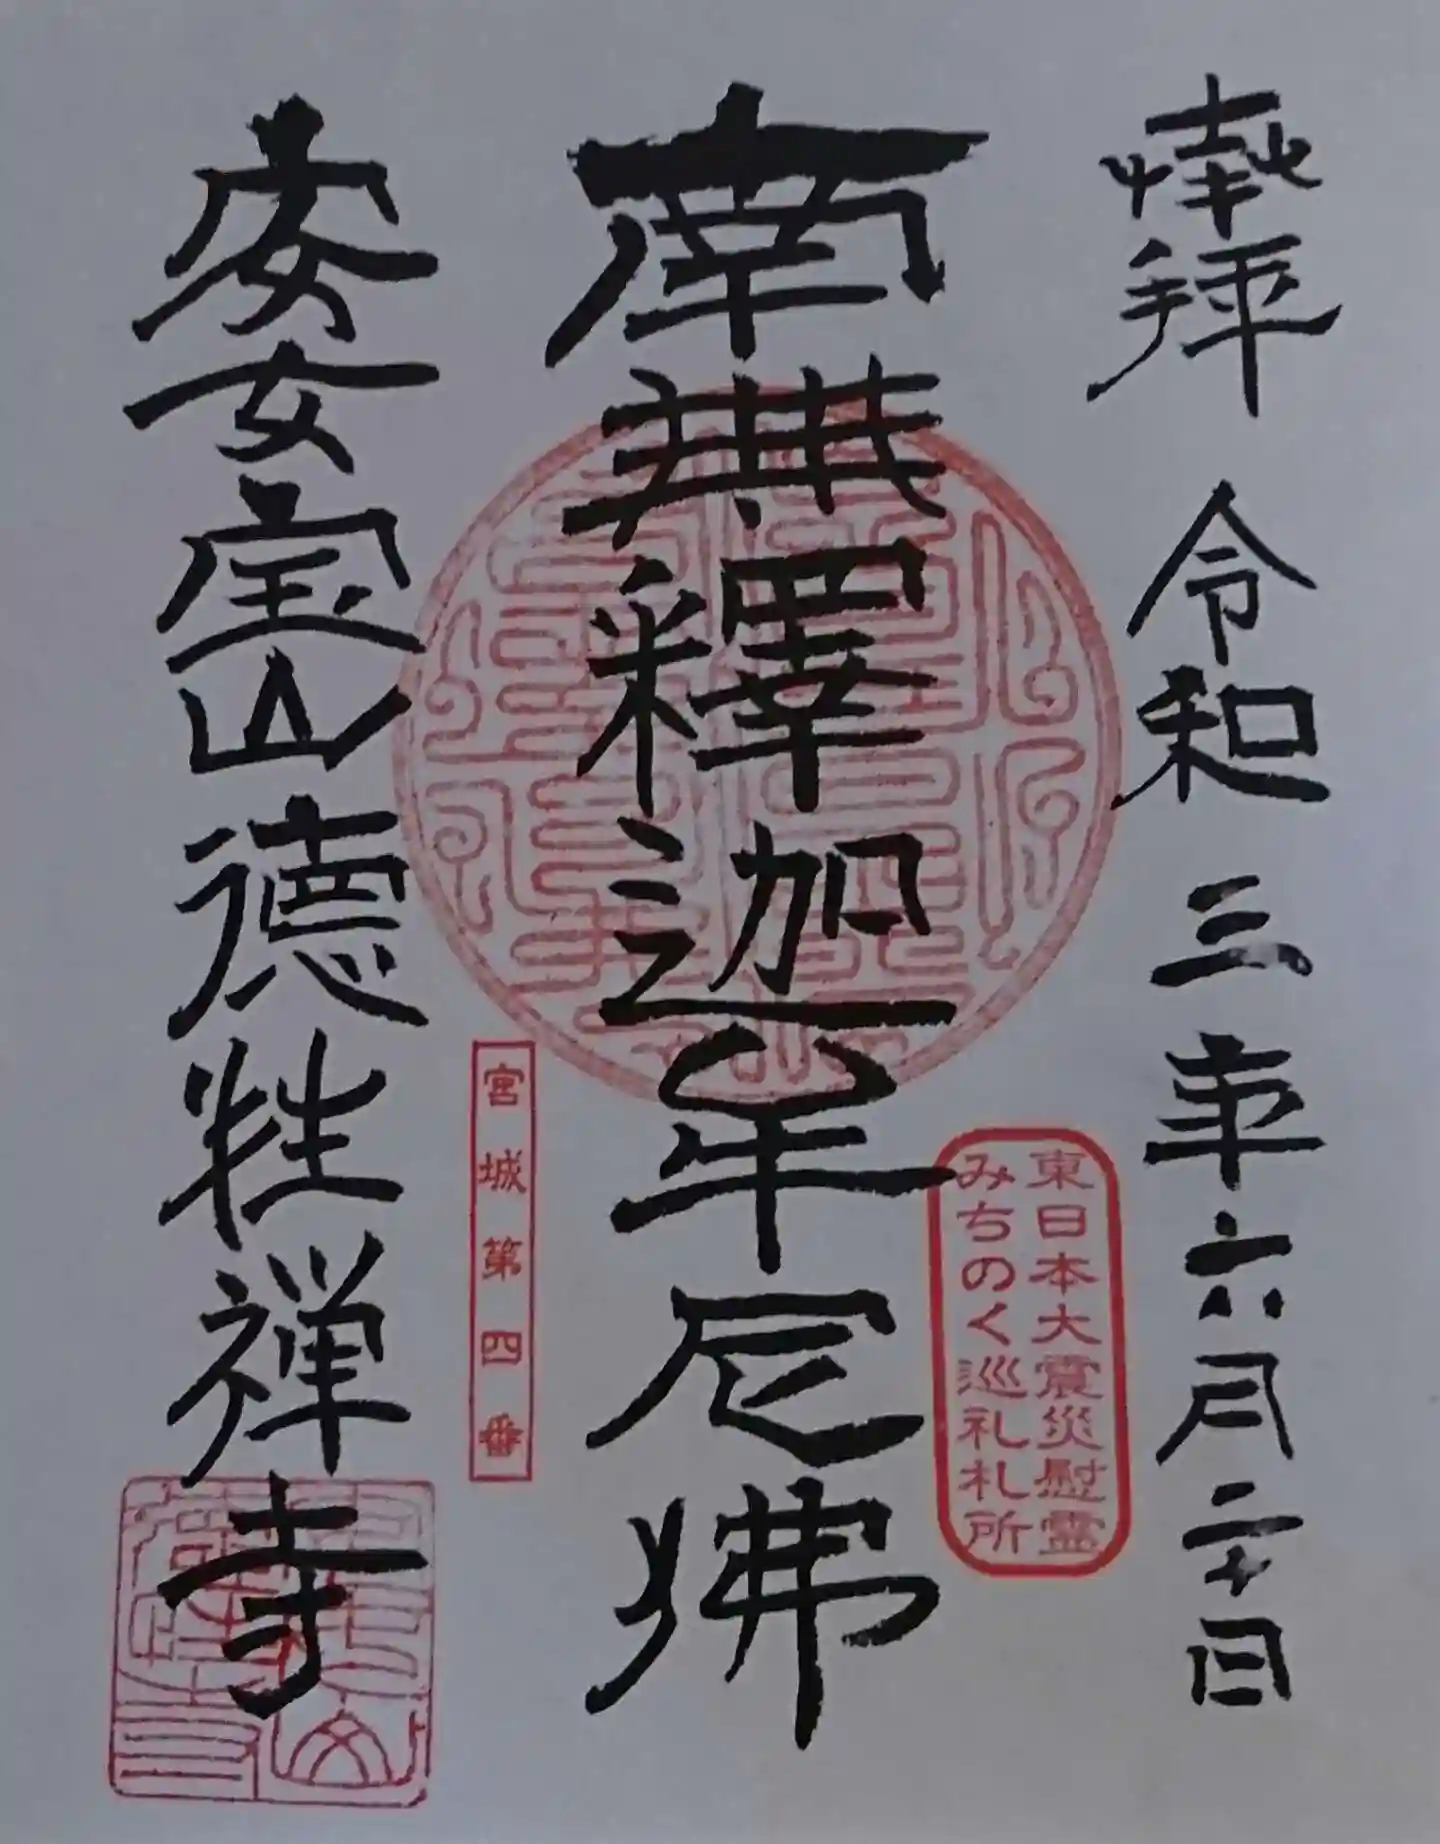 奉拝 令和三年六月二十日
東日本大震災慰霊
みちのく巡礼札所
南無釋迦牟尼佛
宮城第四番
宝山德性禅寺